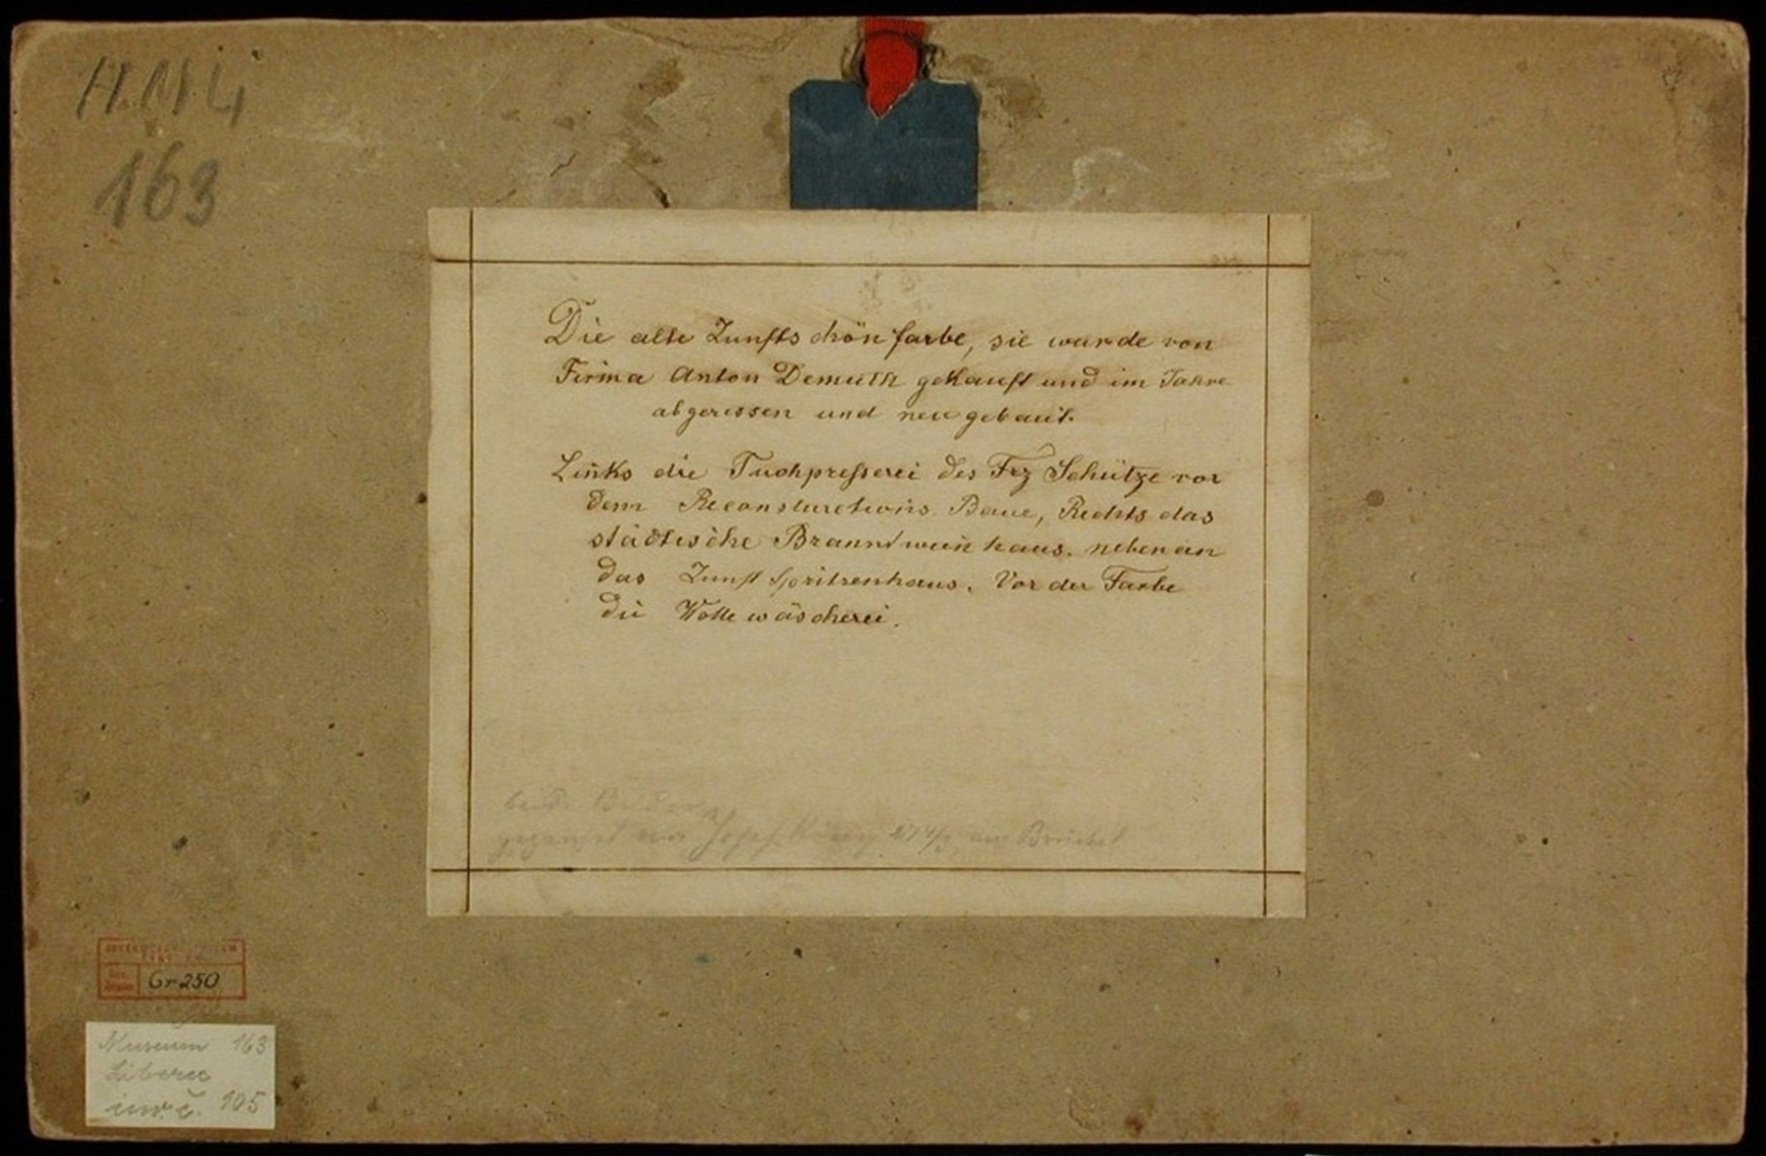 H.M.Li
163
Die alte Zunftschönfarbe, sie wurde von
Firma Anton Demuth gekauft und im Jahre
abgerissen und neu gebaut.
Links die Tuchpresserei des Frz Schütze vor
dem Reconstuructions Baue, Rechts das
städtische Branntwein haus. nebenan
das Zunft Spritzenhaus. Vor der Farbe
die Wollewäscherei.
beide Bilder
von Josef am
Gr 250
Museum 163
Liberec
inv. č. 105